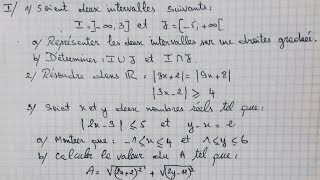 I/ 1/ Soient deux intervalles suivants:
I = ]-∞, 3] et J = [-5, +∞[
a/ Représenter les deux intervalles sur une droites graduée.
b/ Déterminer: I∪J et I∩J.
2/ Résoudre dans ℝ: |3x+2| = |9x+8|
|3x-2| ⩾ 4
3/ Soient x et y deux nombres réels tel que:
|2x-3| ≤ 5 et y-x = 2
a/ Montrer que: -1≤x≤4 et 1≤y≤6
b/ Calculer la valeur du A tel que:
A = √(2x+2)² + √(2y-12)²